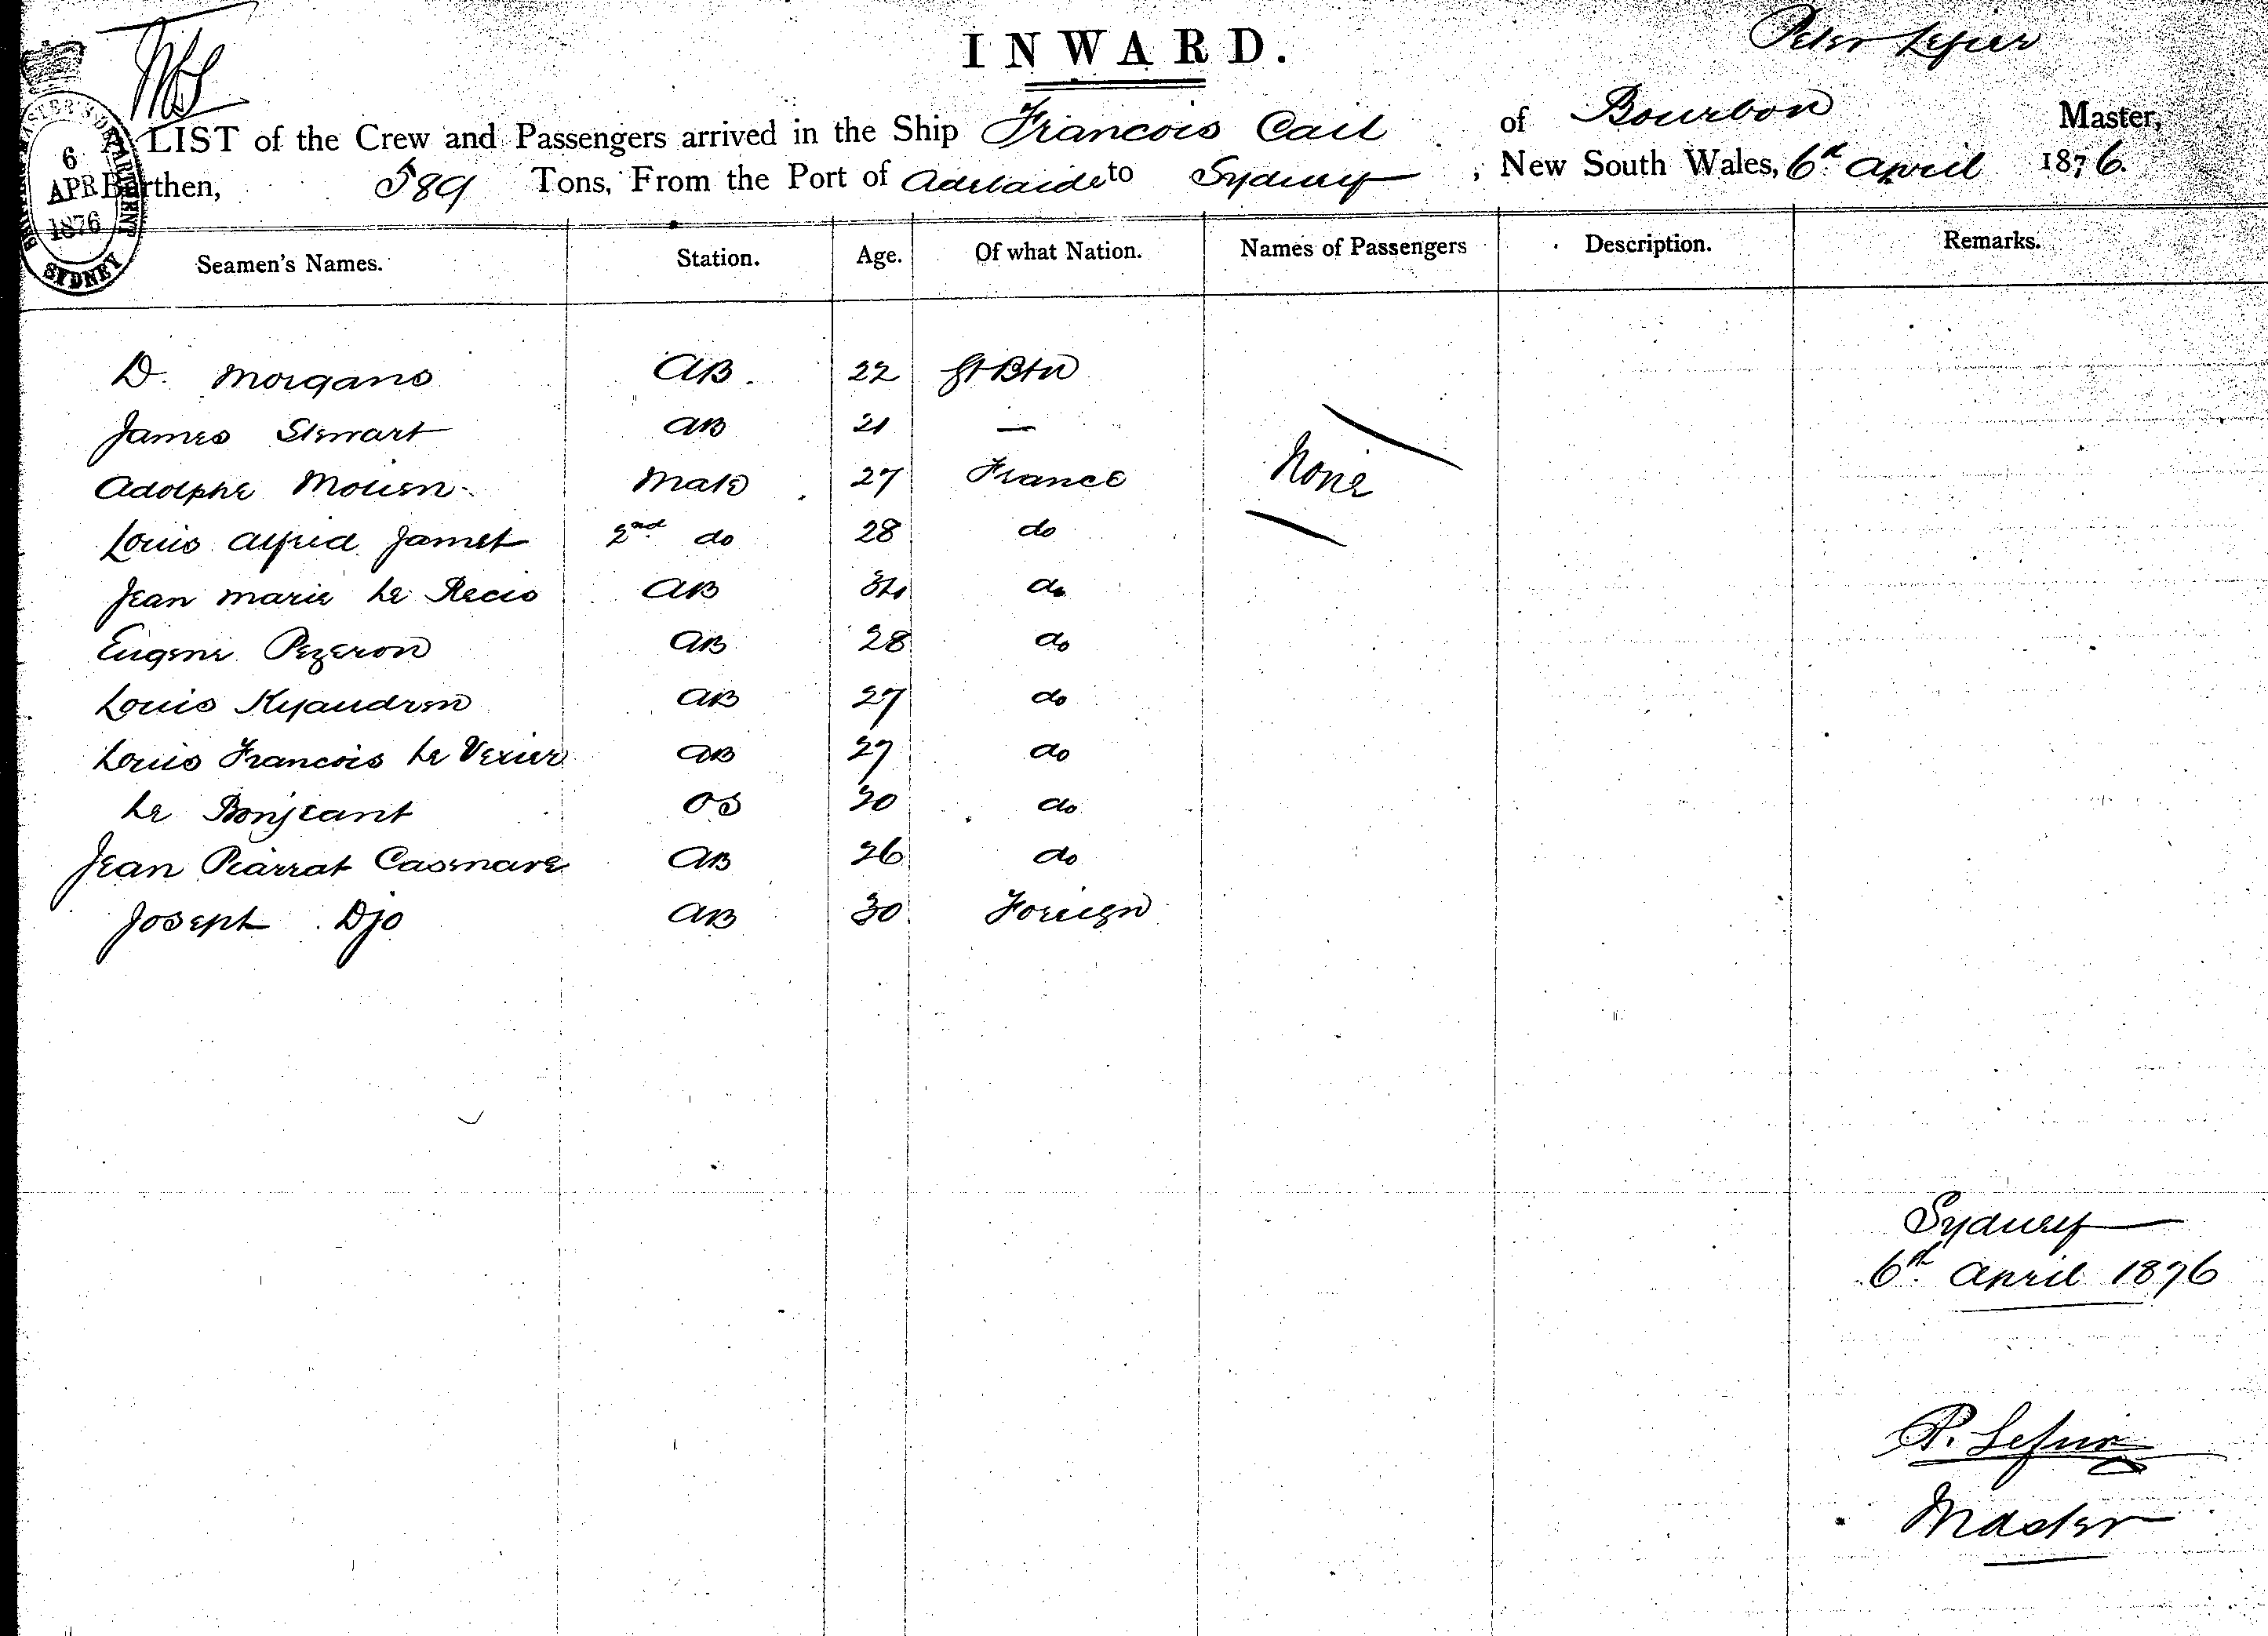 INWARD.
Peter
LIST of the Crew and Passengers arrived in the Ship Francois Cail of Bourbon Master,
Burthen, 589 Tons, From the Port of Adelaide to Sydney, New South Wales, 6th April 1876.
6
APR
1876
SYDNEY
Seamen's Names. Station. Age. Of what Nation. Names of Passengers Description. Remarks.
D. Morgans AB. 22 Gt Btn
James Stewart AB 21 —
Adolphe Mate 27 France
None
Louis Alfred Jamet 2nd do 28 do
Jean Marie Le AB do
Eugene Pezeron AB 28 do
Louis AB 27 do
Louis Francois Le Vexier AB 27 do
Le Bonjeant OS 20 do
Jean Piarrat Casenave AB 26 do
Joseph Djo AB 30 Foreign
Sydney
6th April 1876
P.
Master